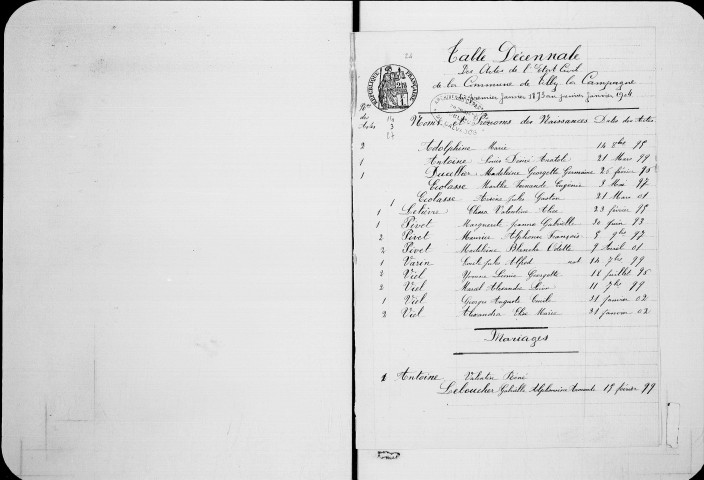 Table Décennale
Des Actes de l'Etat Civil
de la Commune de Tilly la Campagne
du premier Janvier 1893 au premier Janvier 1904
Nos des Actes Noms et Prénoms des Naissances Dates des Actes
2 Adolphine Marie 14 8bre 95
1 Antoine Louis Désiré Anatole 21 Mars 99
1 Ducellier Madeleine Georgette Germaine 26 février 98
Ecolasse Marthe Fernande Eugénie 3 Mai 97
1 Ecolasse Arsène Jules Gaston 21 Mars 01
1 Lelièvre Valentine Alice 22 février 95
1 Pivot Marguerite Jeanne Gabrielle 30 Juin 93
2 Pivot Maurice Alphonse François 5 9bre 97
2 Pivot Madeleine Blanche Odette 9 Avril 01
1 Varin Emile Jules Alfred 14 7bre 99
2 Viel Yvonne Léonie Georgette 18 juillet 98
2 Viel Marcel Alexandre 11 7bre 99
1 Viel Georges Auguste Emile 31 janvier 02
2 Viel Alexandra Elise Marie 31 janvier 02
Mariages
1 Antoine Valentin René
Leloucher Gabrielle Alphonsine 18 février 99